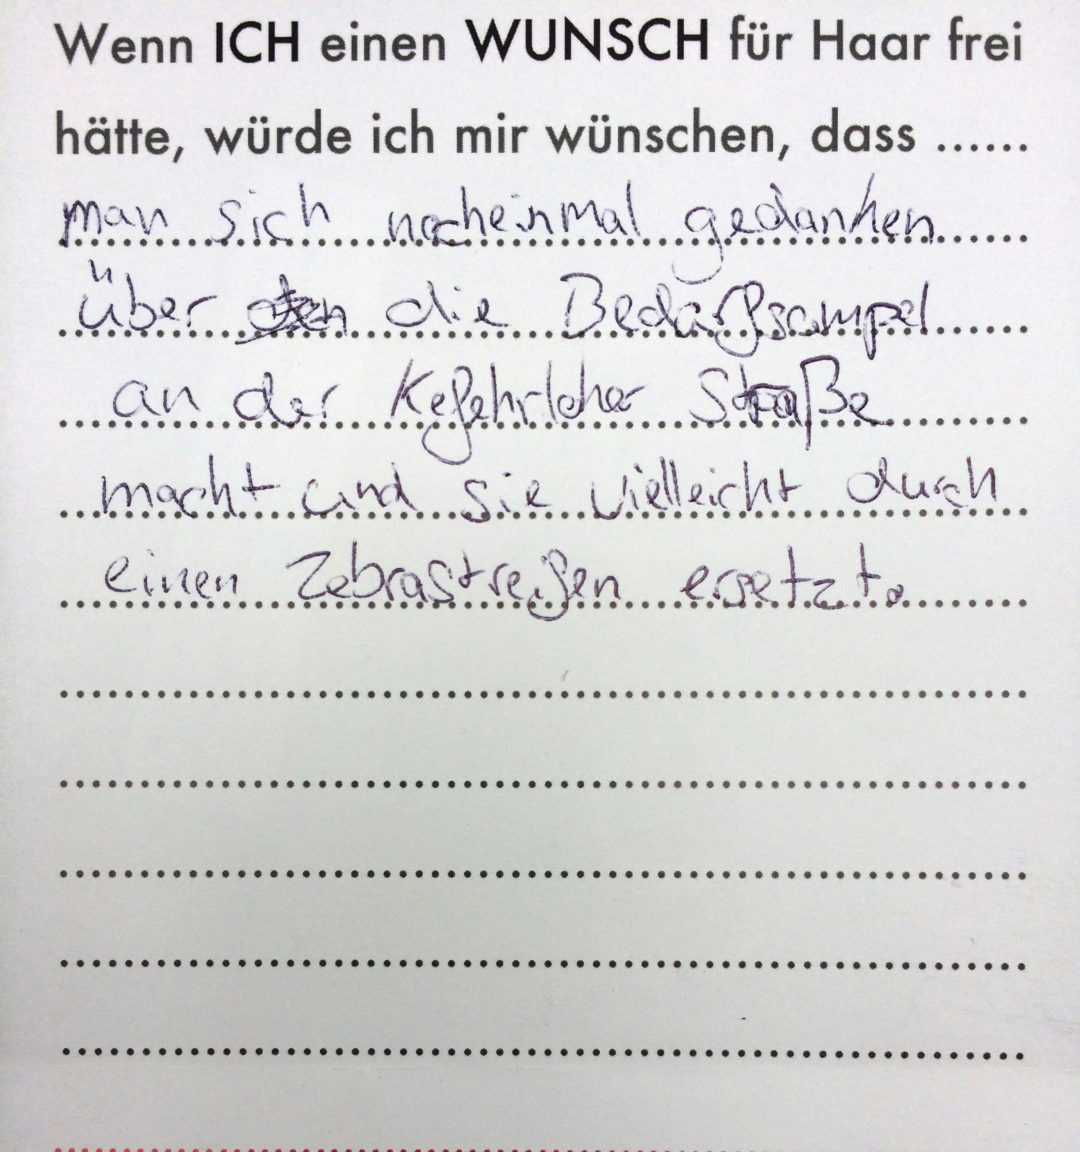 Wenn ICH einen WUNSCH für Haar frei
hätte, würde ich mir wünschen, dass ......
man sich nocheinmal gedanken
über die Bedarfsampel
an der Straße
macht und sie vielleicht durch
einen Zebrastreifen ersetzt.